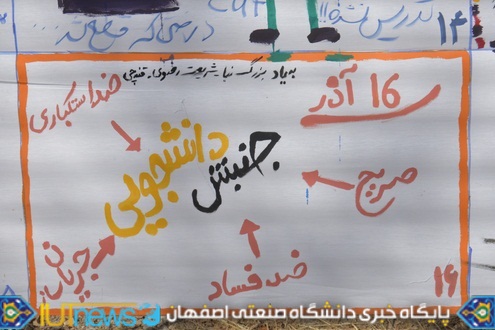 تدریس نشده!!
۱۴
درسی که
به یاد بزرگ نیا، شریعت رضوی، قندچی
16 آذر
ضد استکباری
جنبش دانشجویی
صریح
جریان
ضد فساد
۱۶
iutnews
پایگاه خبری دانشگاه صنعتی اصفهان